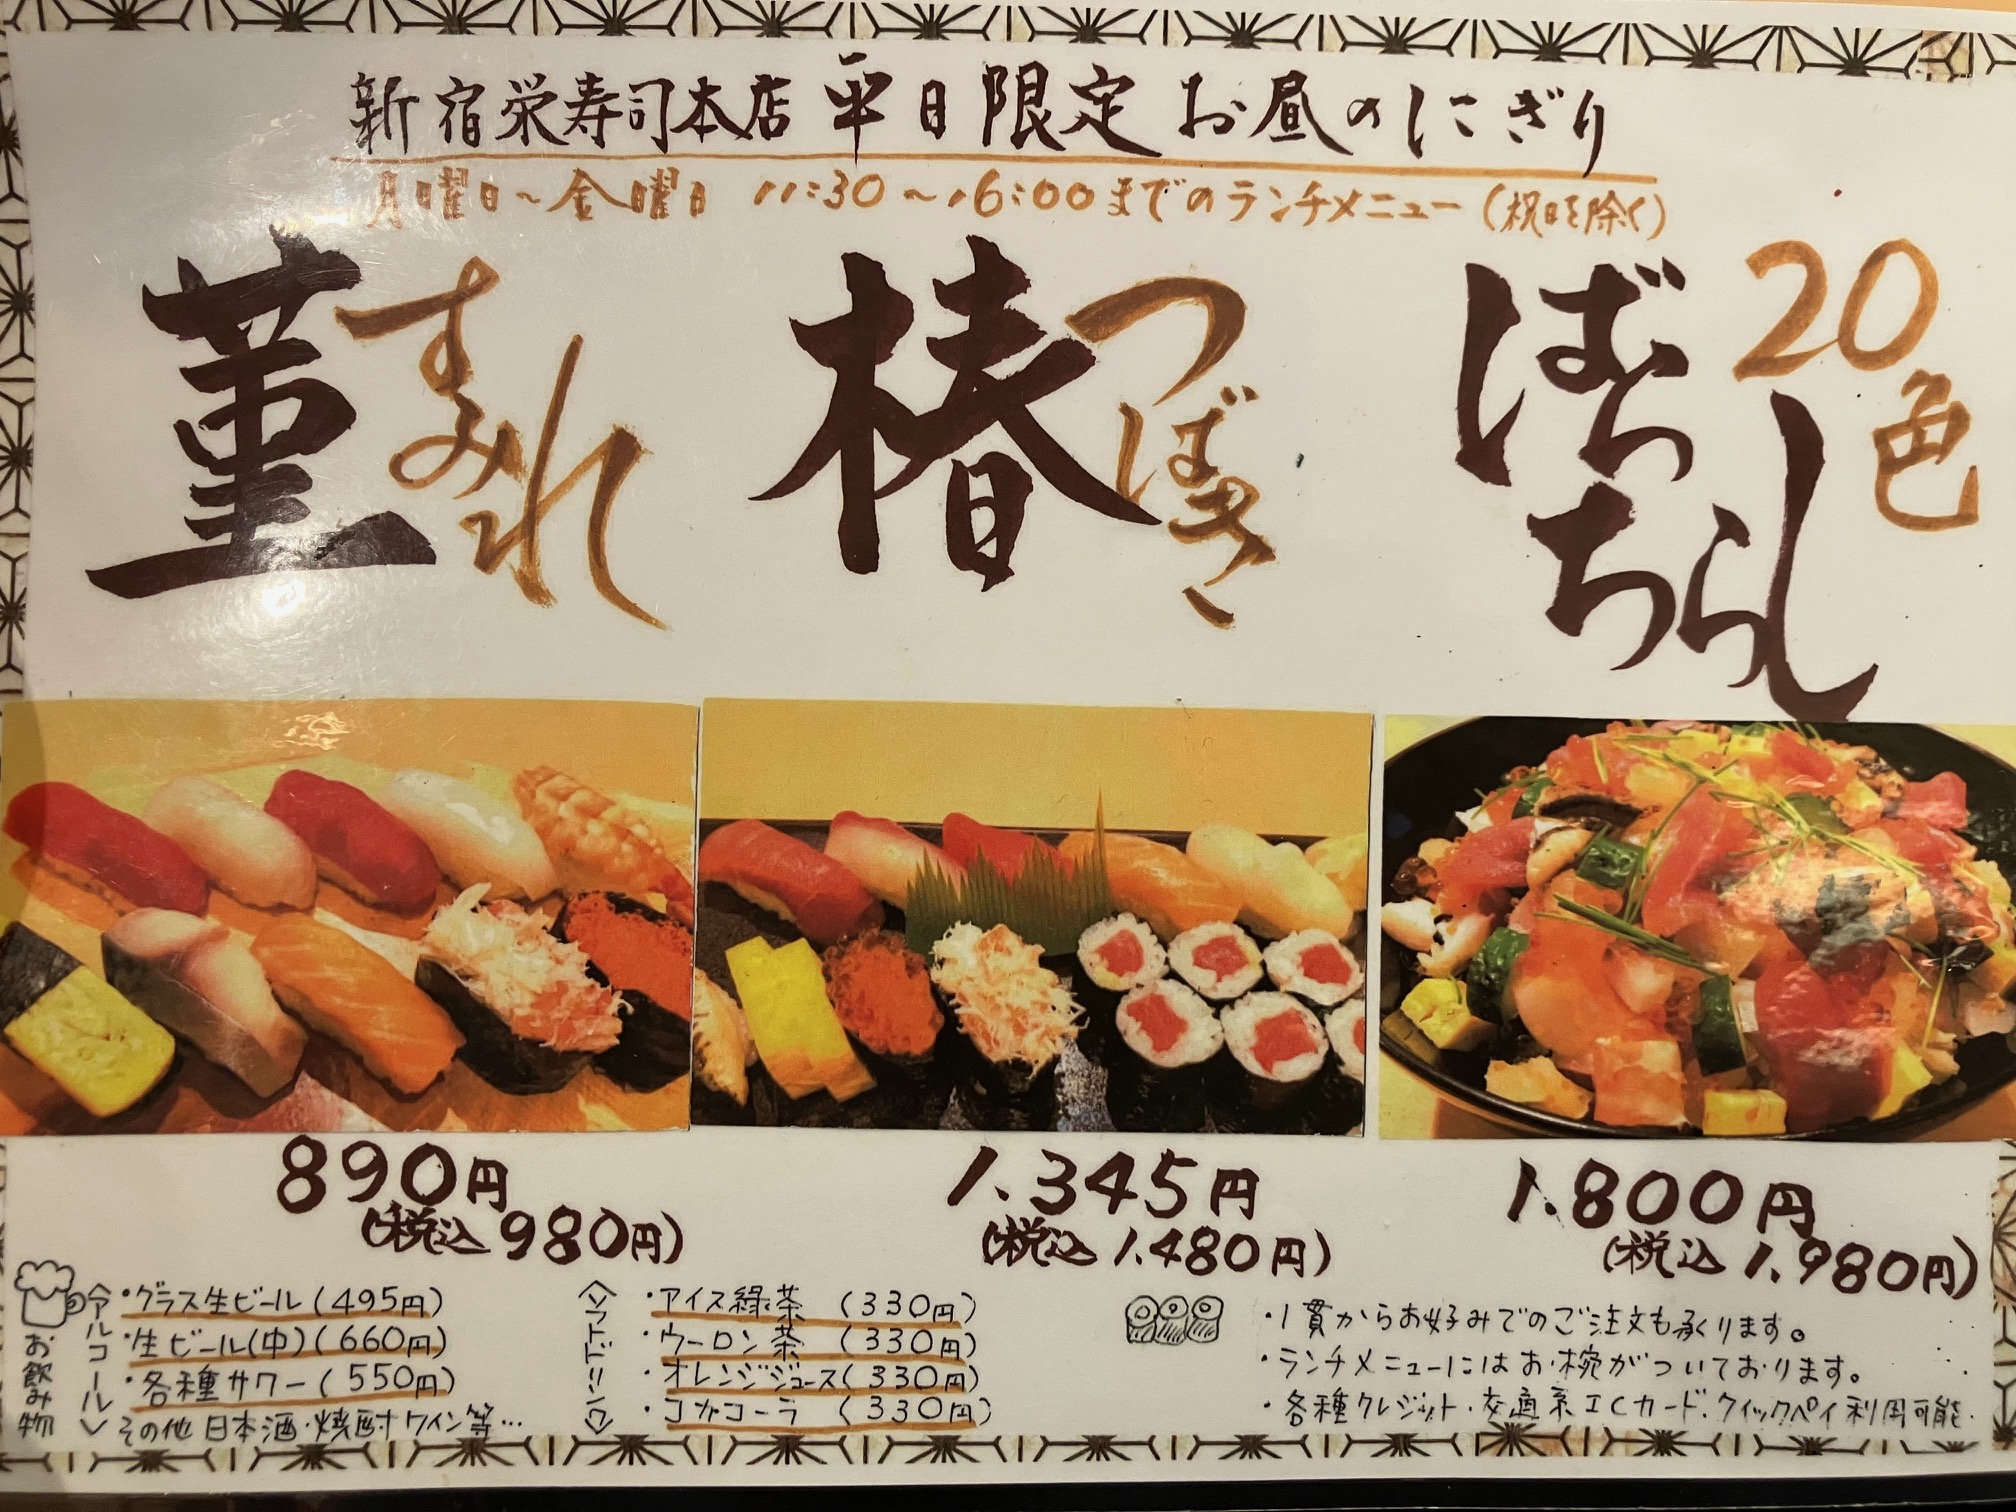 新宿栄寿司本店 平日限定 お昼のにぎり
月曜日～金曜日 11:30～16:00までのランチメニュー(祝日を除く)
菫 すみれ
椿 つばき
20色 ばらちらし
890円
(税込980円)
1.345円
(税込1.480円)
1.800円
(税込1.980円)
お飲み物
〈アルコール〉
・グラス生ビール(495円)
・生ビール(中)(660円)
・各種サワー(550円)
その他 日本酒・焼酎 ワイン等…
〈ソフトドリンク〉
・アイス緑茶 (330円)
・ウーロン茶 (330円)
・オレンジジュース(330円)
・コカコーラ (330円)
・1貫からお好みでのご注文も承ります。
・ランチメニューにはお椀がついております。
・各種クレジット・交通系ICカード、クイックペイ利用可能